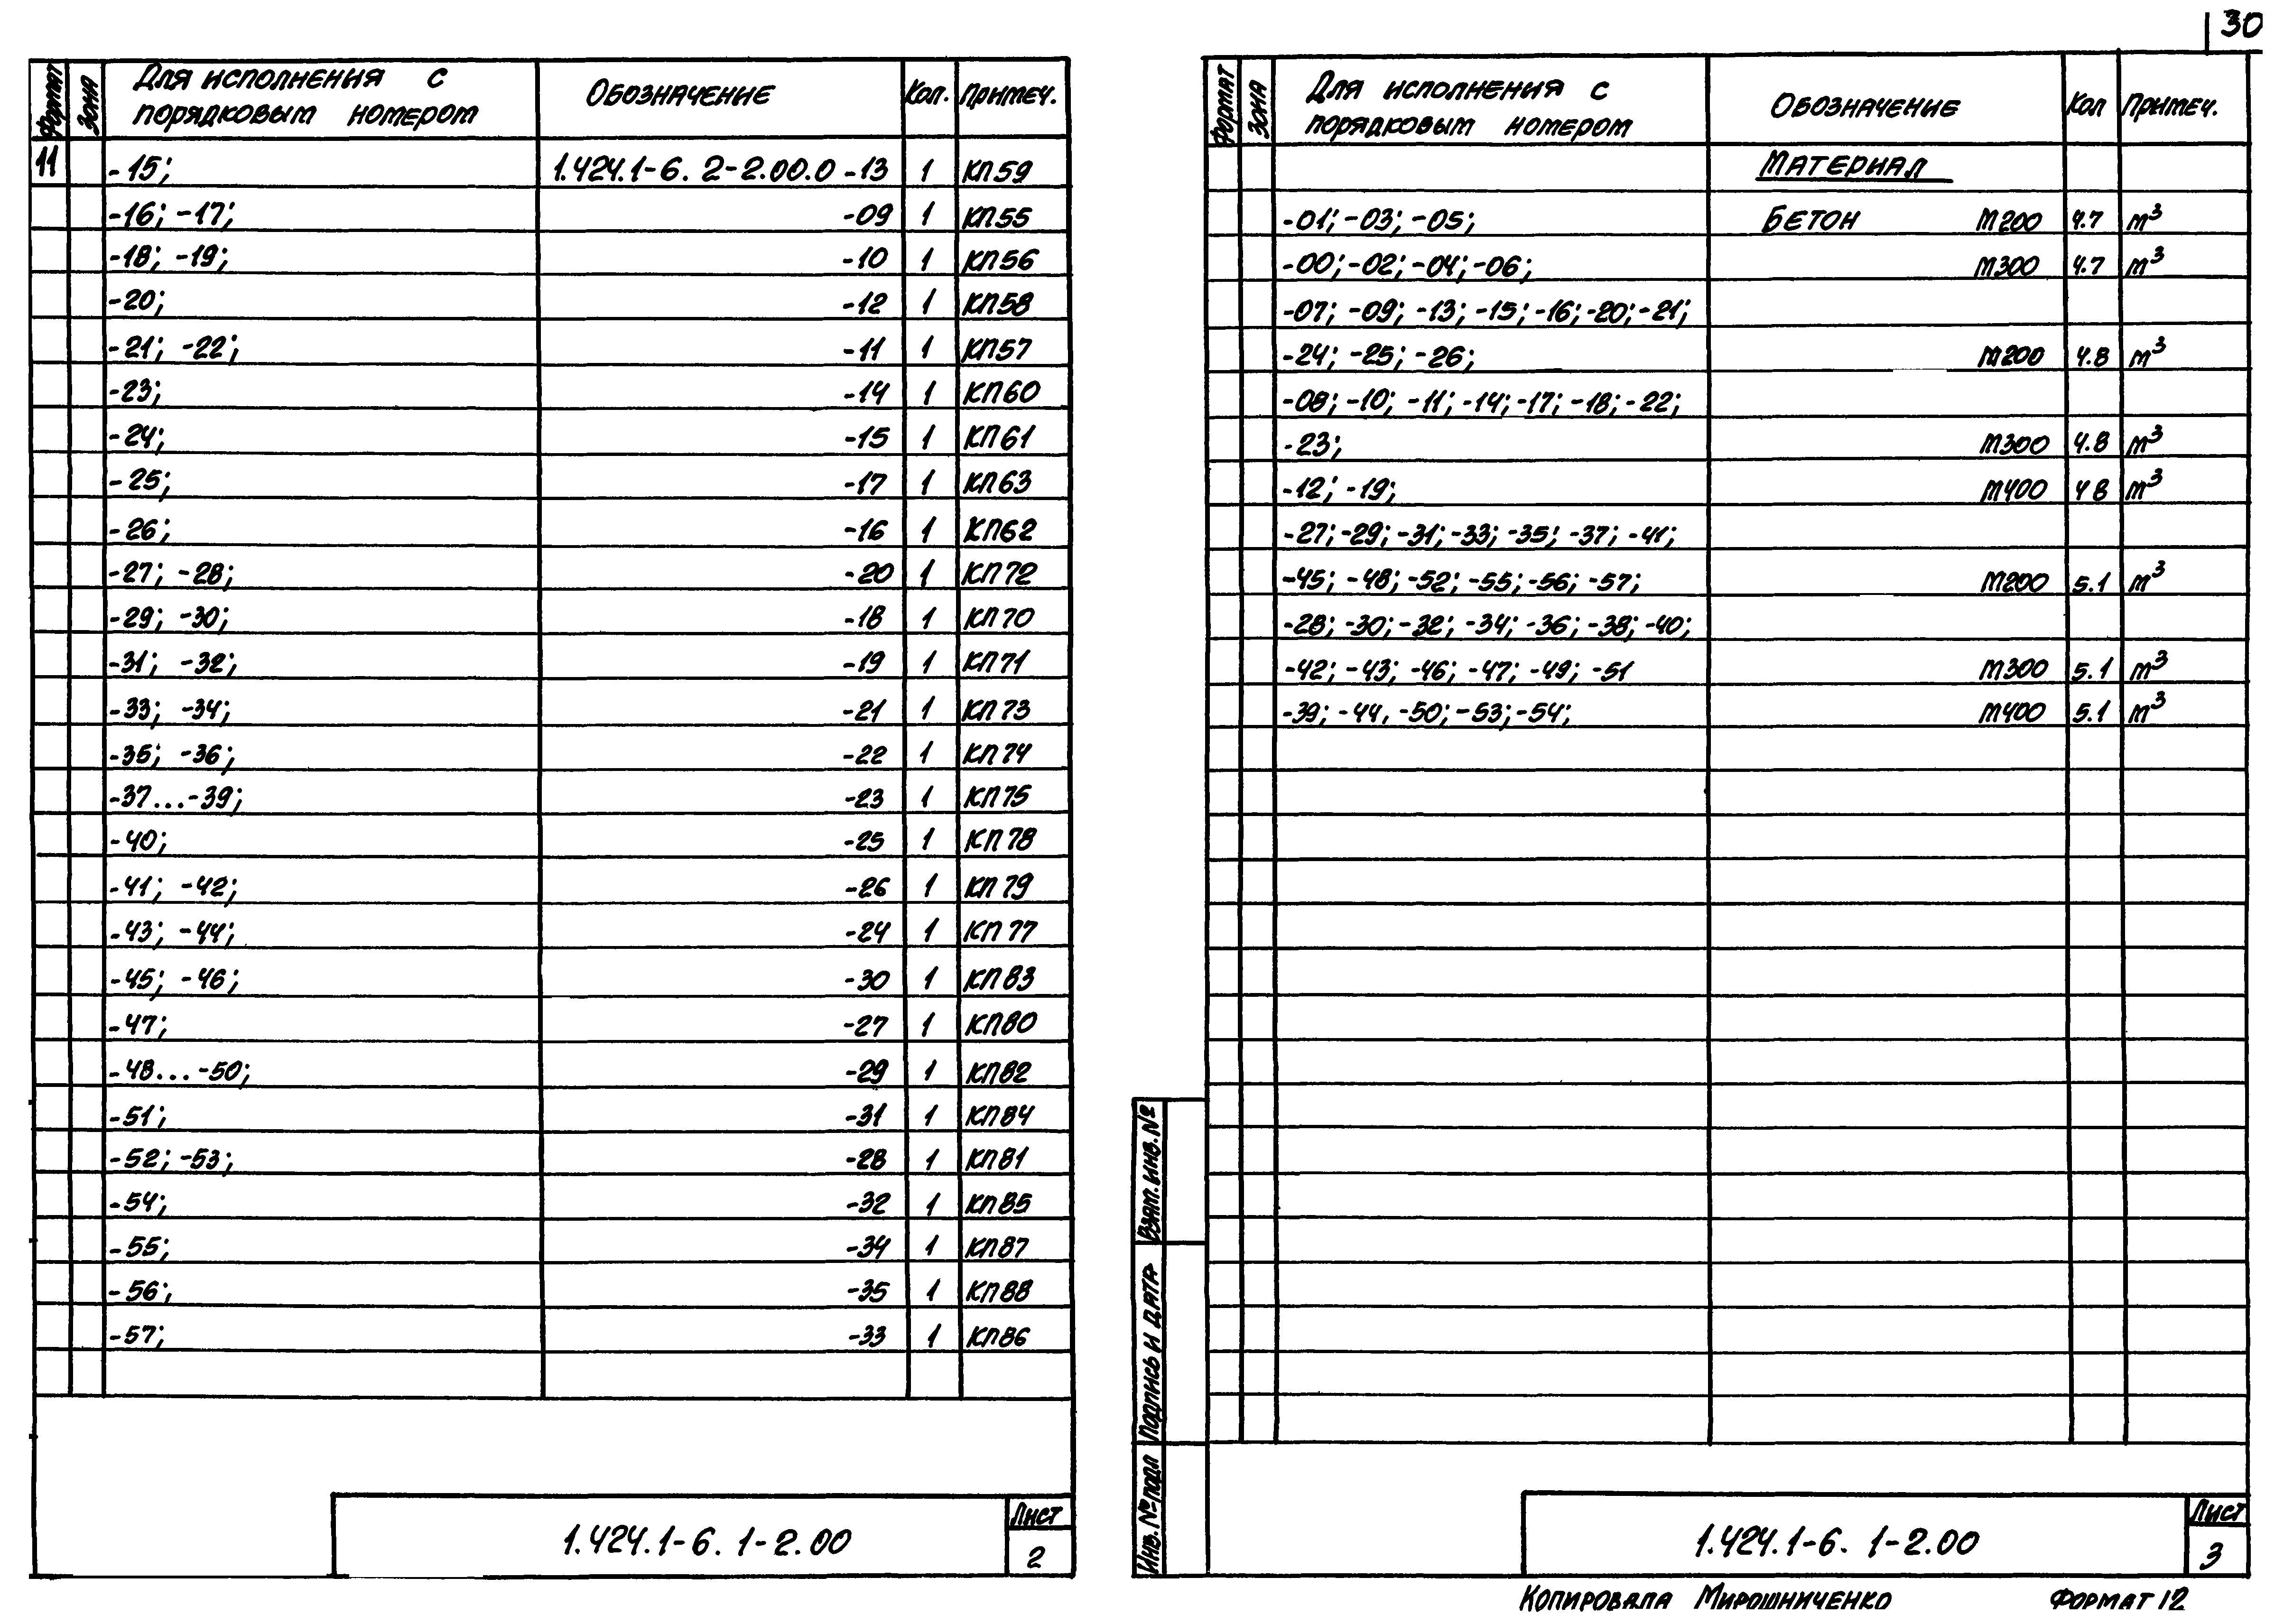 30
Формат Зона Для исполнения с порядковым номером Обозначение Кол. Примеч.
11 -15; 1.424.1-6. 2-2.00.0 -13 1 КП59
-16; -17; -09 1 КП55
-18; -19; -10 1 КП56
-20; -12 1 КП58
-21; -22; -11 1 КП57
-23; -14 1 КП60
-24; -15 1 КП61
-25; -17 1 КП63
-26; -16 1 КП62
-27; -28; -20 1 КП72
-29; -30; -18 1 КП70
-31; -32; -19 1 КП71
-33; -34; -21 1 КП73
-35; -36; -22 1 КП74
-37...-39; -23 1 КП75
-40; -25 1 КП78
-41; -42; -26 1 КП79
-43; -44; -24 1 КП77
-45; -46; -30 1 КП83
-47; -27 1 КП80
-48...-50; -29 1 КП82
-51; -31 1 КП84
-52; -53; -28 1 КП81
-54; -32 1 КП85
-55; -34 1 КП87
-56; -35 1 КП88
-57; -33 1 КП86
1.424.1-6. 1-2.00
Лист
2
Формат Зона Для исполнения с порядковым номером Обозначение Кол Примеч.
Материал
-01; -03; -05; Бетон М200 4.7 м³
-00; -02; -04; -06; М300 4.7 м³
-07; -09; -13; -15; -16; -20; -21;
-24; -25; -26; М200 4.8 м³
-08; -10; -11; -14; -17; -18; -22;
-23; М300 4.8 м³
-12; -19; М400 4 8 м³
-27; -29; -31; -33; -35; -37; -41;
-45; -48; -52; -55; -56; -57; М200 5.1 м³
-28; -30; -32; -34; -36; -38; -40;
-42; -43; -46; -47; -49; -51 М300 5.1 м³
-39; -44, -50; -53; -54; М400 5.1 м³
Взам. инв. №
Подпись и дата
Инв. № подл
1.424.1-6. 1-2.00
Лист
3
Копировала Мирошниченко Формат 12